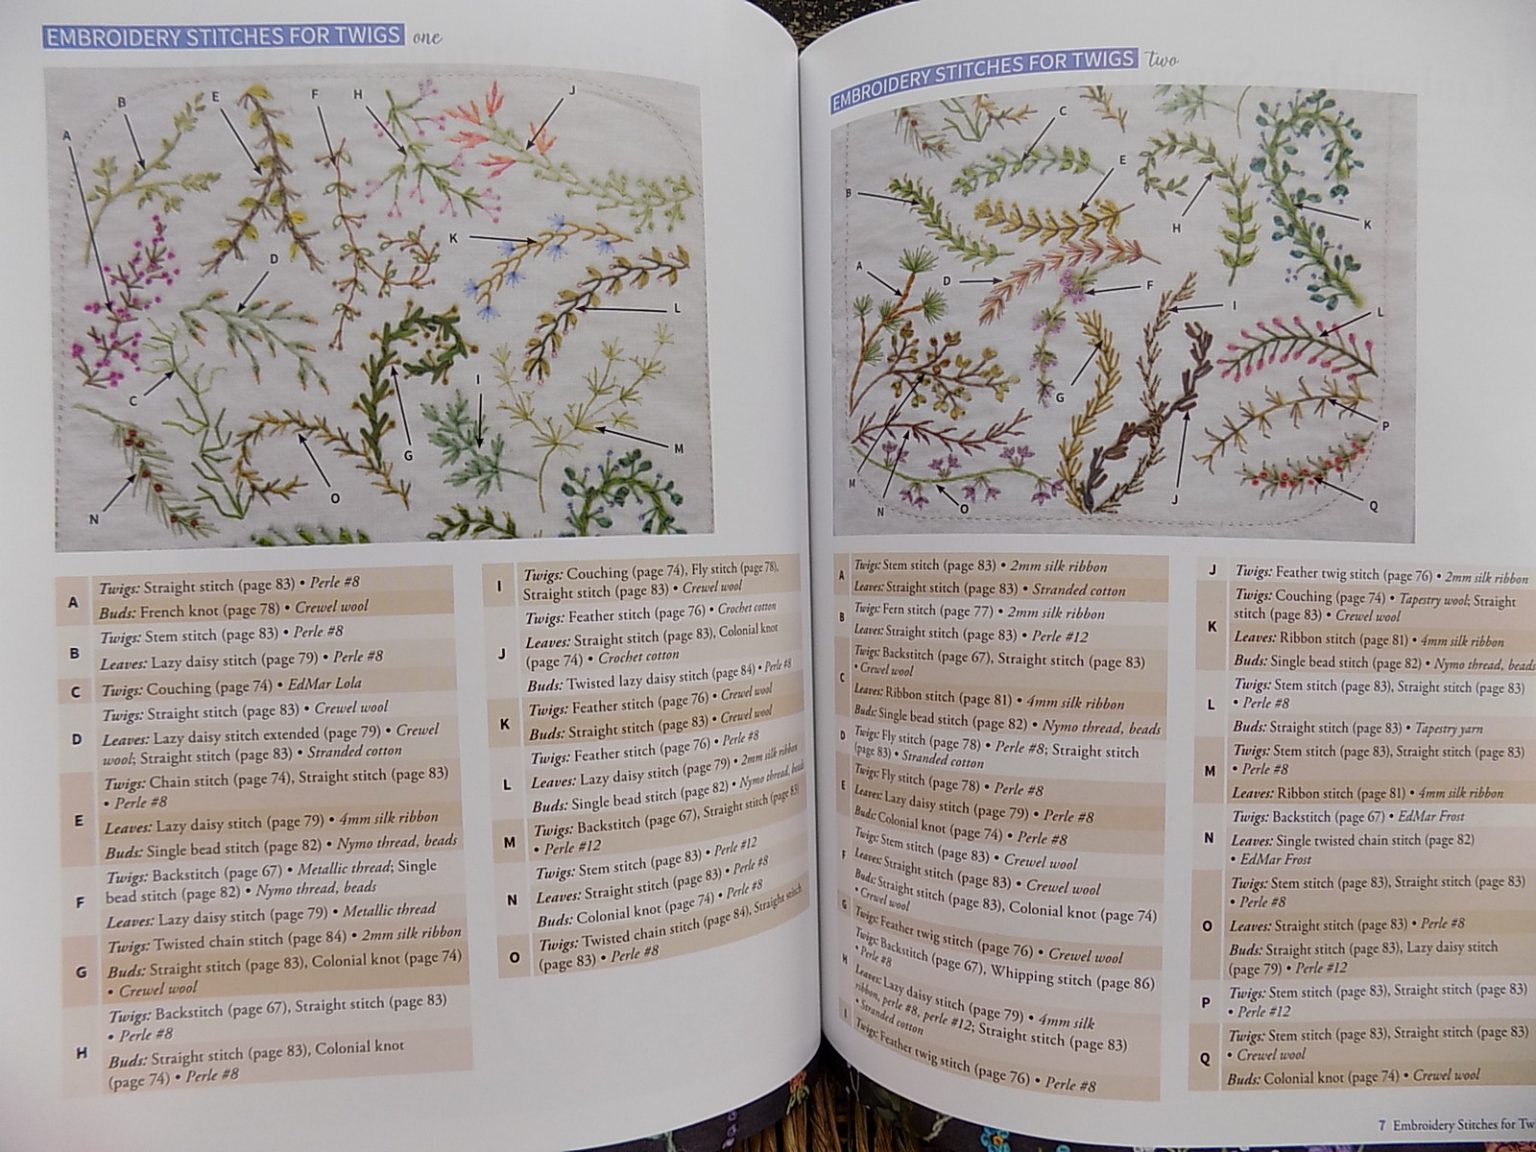 EMBROIDERY STITCHES FOR TWIGS one
B
E
F
H
J
A
K
D
L
C
I
G
M
N
O
A
Twigs: Straight stitch (page 83) • Perle #8
Buds: French knot (page 78) • Crewel wool
B
Twigs: Stem stitch (page 83) • Perle #8
Leaves: Lazy daisy stitch (page 79) • Perle #8
C
Twigs: Couching (page 74) • EdMar Lola
D
Twigs: Straight stitch (page 83) • Crewel wool
Leaves: Lazy daisy stitch extended (page 79) • Crewel
wool; Straight stitch (page 83) • Stranded cotton
E
Twigs: Chain stitch (page 74), Straight stitch (page 83)
• Perle #8
Leaves: Lazy daisy stitch (page 79) • 4mm silk ribbon
Buds: Single bead stitch (page 82) • Nymo thread, beads
F
Twigs: Backstitch (page 67) • Metallic thread; Single
bead stitch (page 82) • Nymo thread, beads
Leaves: Lazy daisy stitch (page 79) • Metallic thread
G
Twigs: Twisted chain stitch (page 84) • 2mm silk ribbon
Buds: Straight stitch (page 83), Colonial knot (page 74)
• Crewel wool
H
Twigs: Backstitch (page 67), Straight stitch (page 83)
• Perle #8
Buds: Straight stitch (page 83), Colonial knot
(page 74) • Perle #8
I
Twigs: Couching (page 74), Fly stitch (page 78),
Straight stitch (page 83) • Crewel wool
J
Twigs: Feather stitch (page 76) • Crochet cotton
Leaves: Straight stitch (page 83), Colonial knot
(page 74) • Crochet cotton
Buds: Twisted lazy daisy stitch (page 84) • Perle #8
K
Twigs: Feather stitch (page 76) • Crewel wool
Buds: Straight stitch (page 83) • Crewel wool
L
Twigs: Feather stitch (page 76) • Perle #8
Leaves: Lazy daisy stitch (page 79) • 2mm silk ribbon
Buds: Single bead stitch (page 82) • Nymo thread, beads
M
Twigs: Backstitch (page 67), Straight stitch (page 83)
• Perle #12
N
Twigs: Stem stitch (page 83) • Perle #12
Leaves: Straight stitch (page 83) • Perle #8
Buds: Colonial knot (page 74) • Perle #8
O
Twigs: Twisted chain stitch (page 84), Straight stitch
(page 83) • Perle #8
EMBROIDERY STITCHES FOR TWIGS two
C
E
B
K
H
A
D
F
I
L
G
P
M
N
O
J
Q
A
Twigs: Stem stitch (page 83) • 2mm silk ribbon
Leaves: Straight stitch (page 83) • Stranded cotton
B
Twigs: Fern stitch (page 77) • 2mm silk ribbon
Leaves: Straight stitch (page 83) • Perle #12
C
Twig: Backstitch (page 67), Straight stitch (page 83)
• Crewel wool
Leaves: Ribbon stitch (page 81) • 4mm silk ribbon
Buds: Single bead stitch (page 82) • Nymo thread, beads
D
Twigs: Fly stitch (page 78) • Perle #8; Straight stitch
(page 83) • Stranded cotton
E
Twigs: Fly stitch (page 78) • Perle #8
Leaves: Lazy daisy stitch (page 79) • Perle #8
Buds: Colonial knot (page 74) • Perle #8
F
Twigs: Stem stitch (page 83) • Crewel wool
Leaves: Straight stitch (page 83) • Crewel wool
Buds: Straight stitch (page 83), Colonial knot (page 74)
• Crewel wool
G
Twigs: Feather twig stitch (page 76) • Crewel wool
H
Twigs: Backstitch (page 67), Whipping stitch (page 86)
• Perle #8
Leaves: Lazy daisy stitch (page 79) • 4mm silk
ribbon, perle #8, perle #12; Straight stitch (page 83)
• Stranded cotton
I
Twigs: Feather twig stitch (page 76) • Perle #8
J
Twigs: Feather twig stitch (page 76) • 2mm silk ribbon
K
Twigs: Couching (page 74) • Tapestry wool; Straight
stitch (page 83) • Crewel wool
Leaves: Ribbon stitch (page 81) • 4mm silk ribbon
Buds: Single bead stitch (page 82) • Nymo thread, beads
L
Twigs: Stem stitch (page 83), Straight stitch (page 83)
• Perle #8
Buds: Straight stitch (page 83) • Tapestry yarn
M
Twigs: Stem stitch (page 83), Straight stitch (page 83)
• Perle #8
Leaves: Ribbon stitch (page 81) • 4mm silk ribbon
N
Twigs: Backstitch (page 67) • EdMar Frost
Leaves: Single twisted chain stitch (page 82)
• EdMar Frost
O
Twigs: Stem stitch (page 83), Straight stitch (page 83)
• Perle #8
Leaves: Straight stitch (page 83) • Perle #8
Buds: Straight stitch (page 83), Lazy daisy stitch
(page 79) • Perle #12
P
Twigs: Stem stitch (page 83), Straight stitch (page 83)
• Perle #12
Q
Twigs: Stem stitch (page 83), Straight stitch (page 83)
• Crewel wool
Buds: Colonial knot (page 74) • Crewel wool
7 Embroidery Stitches for Tw